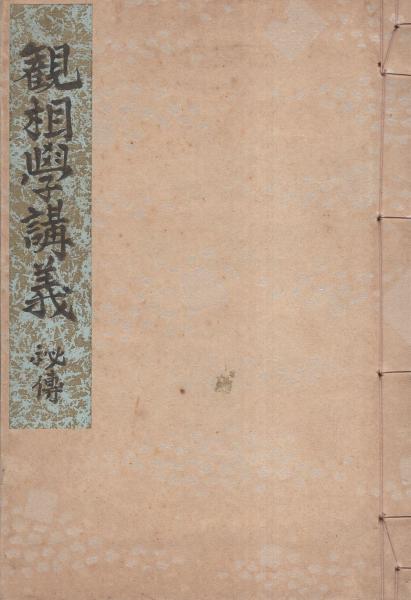 観相學講義
秘傳